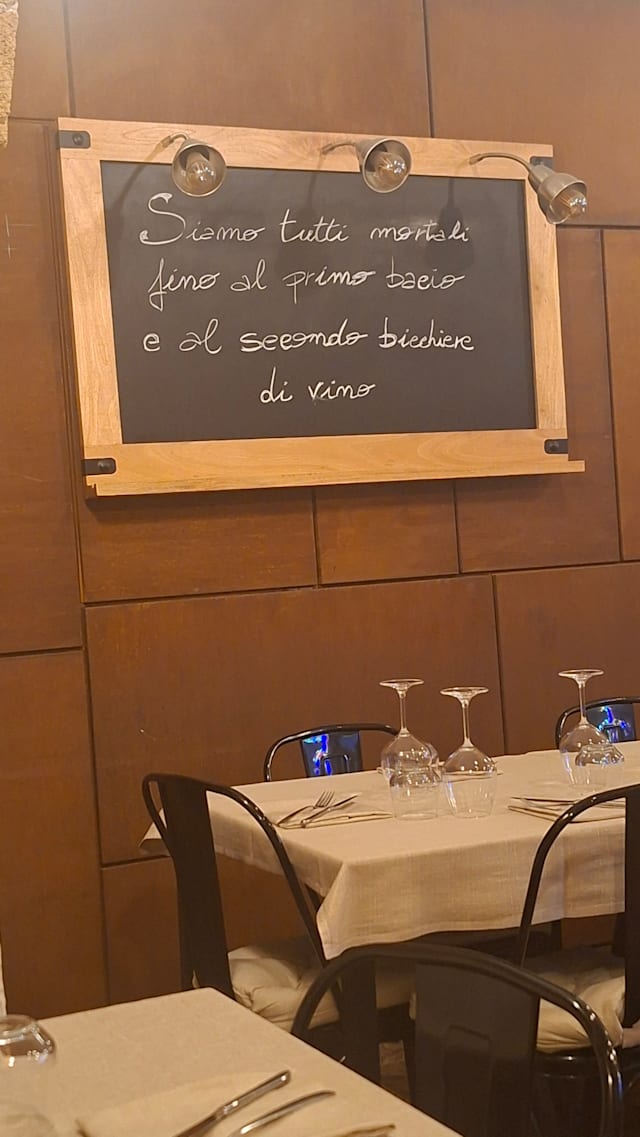 Siamo tutti mortali
fino al primo bacio
e al secondo bicchiere
di vino